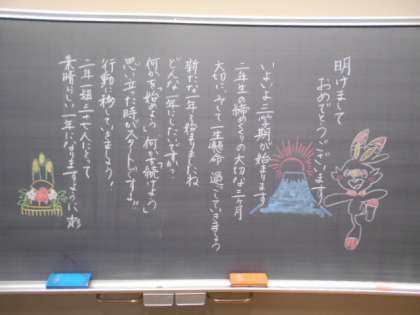 明けまして
おめでとうございます
いよいよ三学期が始まります
二年生の締めくくりの大切な三ヶ月
大切に、そして一生懸命 過ごしていきましょう
新たな一年も始まりましたね
どんな一年にしたいですか?
何かを始めよう、何かを続けよう
思い立った時がスタートです!!
行動に移していきましょう!
二年一組三十七人にとって
素晴らしい一年になりますように